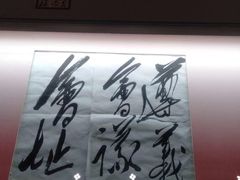 遵义
會議
會址